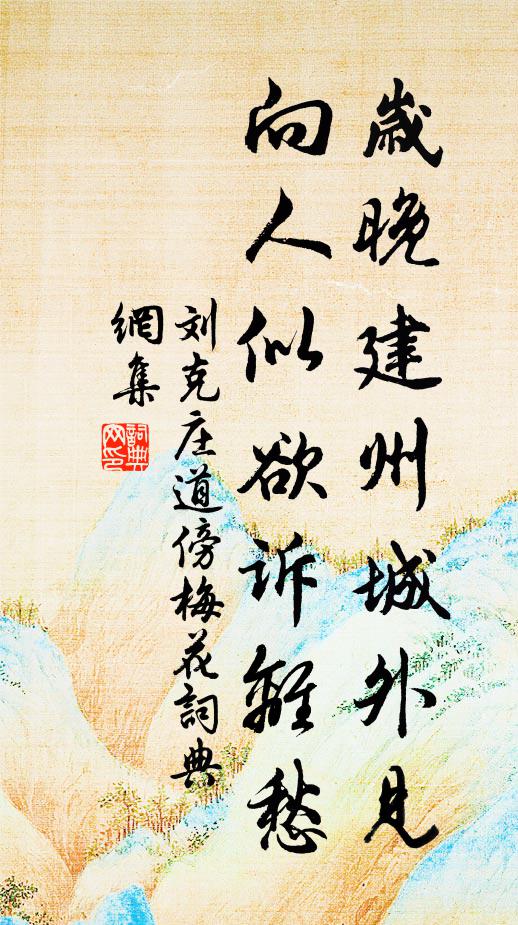 歲晚建州城外見
向人似欲诉離愁
刘克庄道傍梅花詞典
網集
詞典
网印